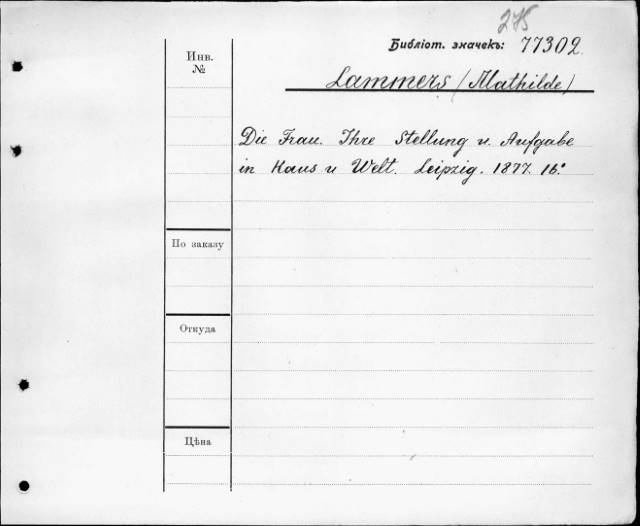 275
Библіот. значекъ: 77302.
Инв. №
Lammers (Mathilde)
Die Frau. Ihre Stellung u. Aufgabe
in Haus u Welt. Leipzig. 1877. 16.°
По заказу
Откуда
Цѣна